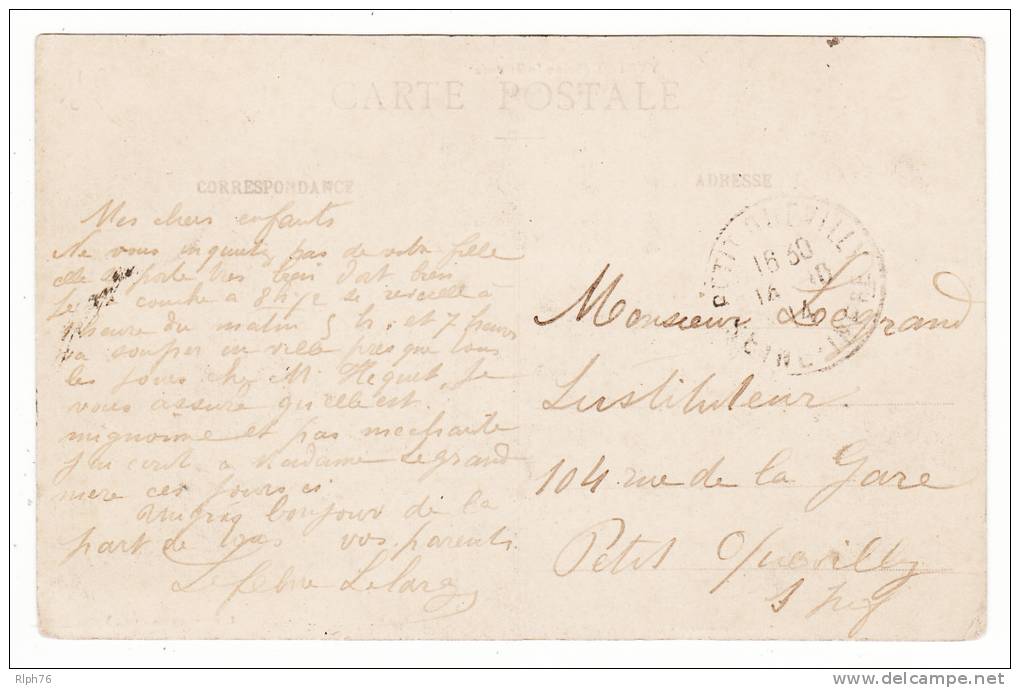 CARTE POSTALE
CORRESPONDANCE
ADRESSE
Mes chers enfants
Ne vous inquietez pas de votre fille
elle se porte tres bien dort bien
se couche a 8h 1/2 se reveille à
heure du matin 5 h. et 7 heures
va souper en ville presque tous
les jours chez M. Hequet. Je
vous assure qu'elle est
mignonne et pas mechante
J'ai ecrit a Madame Legrand
mere ces jours ci
un gros bonjour de la
part de tous vos parents
Lefebvre Lelarg
PETIT QUEVILLY
16 30
14
SEINE-INFRE
Monsieur Legrand
Instituteur
104 rue de la Gare
Petit Quevilly
S Inf
Rlph76
www.delcampe.net